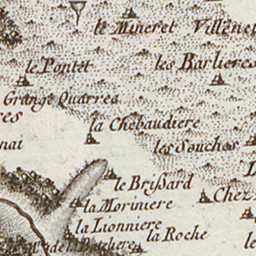 le Mineret
Villene
le Pontet
les Barlieres
Grange Quarrea
res
la Chebaudiere
nai
les Souches
le Brissard
Chez
la Moriniere
la Lionniere
la Roche
le
de la Botchere